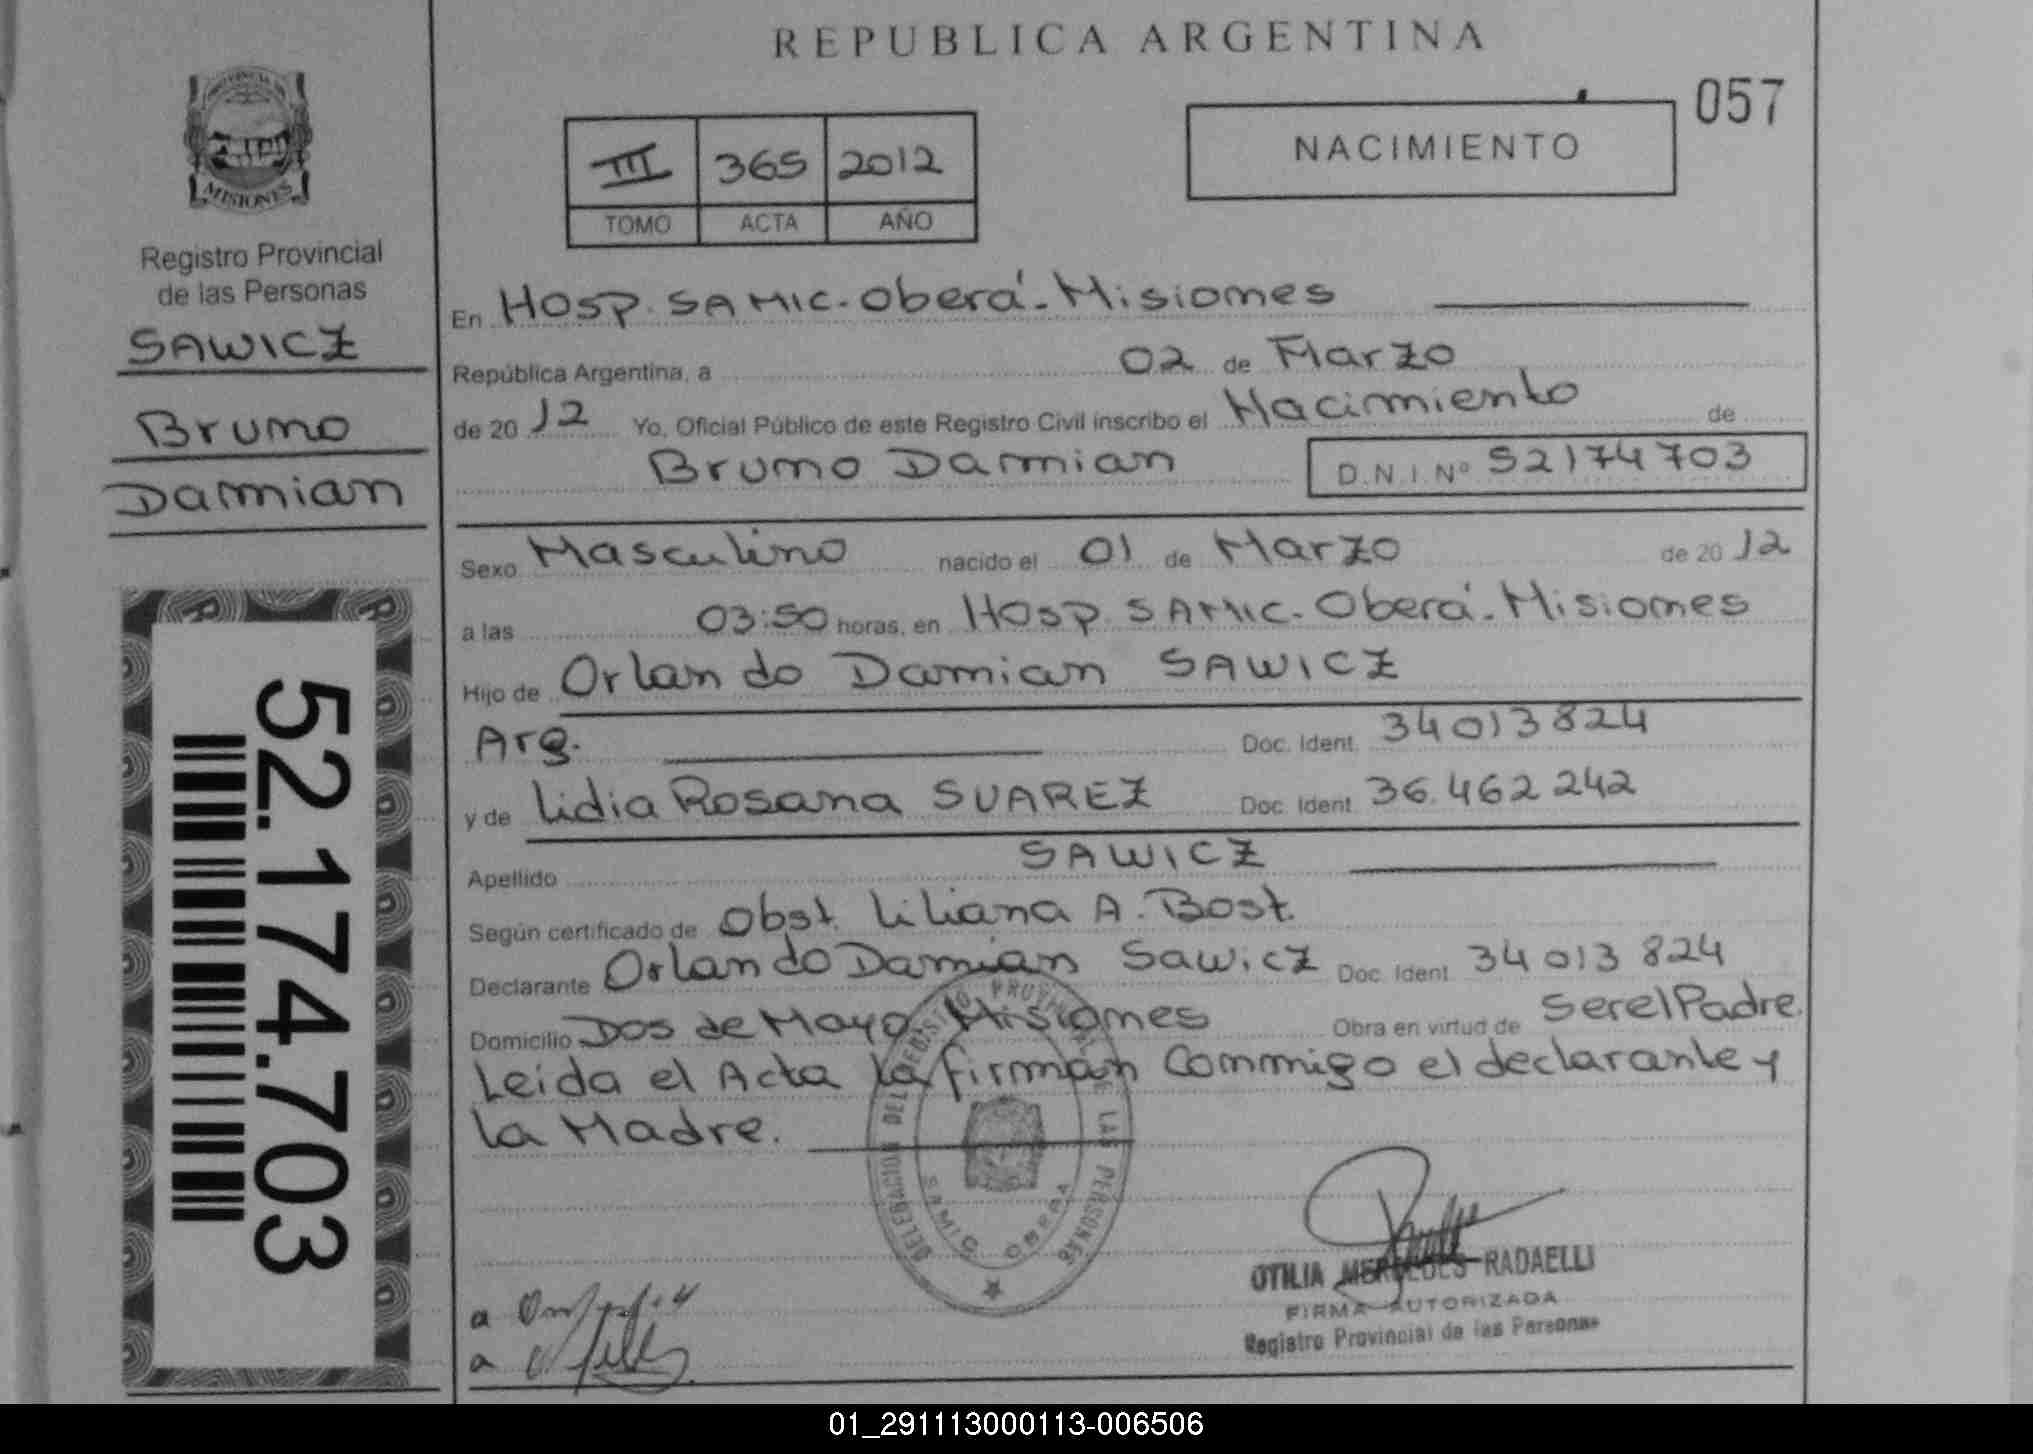 REPUBLICA ARGENTINA
057
NACIMIENTO
III 365 2012
TOMO ACTA AÑO
MISIONES
Registro Provincial
de las Personas
SAWICZ
Bruno
Damian
52.174.703
En Hosp. SAMIC - Oberá - Misiones
República Argentina, a 02 de Marzo
de 2012 Yo, Oficial Público de este Registro Civil inscribo el Nacimiento de
Bruno Damian D.N.I. Nº 52174703
Sexo Masculino nacido el 01 de Marzo de 2012
a las 03:50 horas, en Hosp. SAMIC - Oberá - Misiones
Hijo de Orlando Damian SAWICZ
Arg. Doc. Ident. 34013824
y de Lidia Rosana SUAREZ Doc. Ident. 36.462 242
Apellido SAWICZ
Según certificado de Obst. Liliana A. Bost.
Declarante Orlando Damian Sawicz Doc. Ident. 34 013 824
Domicilio Dos de Mayo Misiones Obra en virtud de Ser el Padre.
Leida el Acta la firman conmigo el declarante y
la Madre.
DELEGACION DEL REGISTRO PROVINCIAL DE LAS PERSONAS
SAMIC OBERA
a
a
OTILIA MERCEDES RADAELLI
FIRMA AUTORIZADA
Registro Provincial de las Personas
01_291113000113-006506